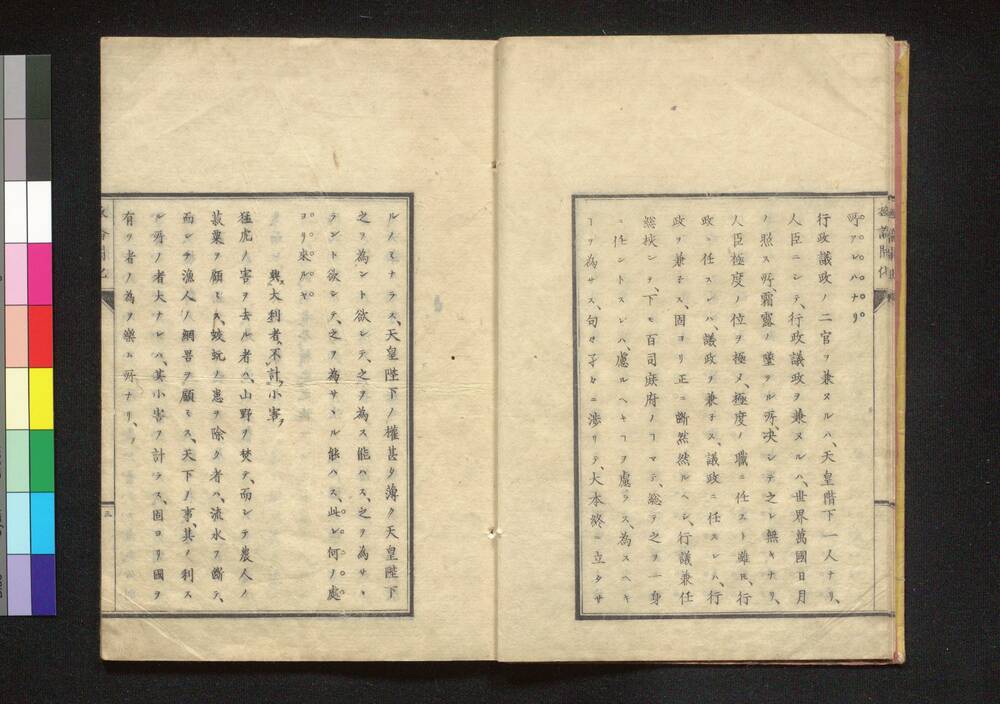 所アレバナリ
行政議政ノ二官ヲ兼ヌルハ、天皇陛下一人ナリ、
人臣ニシテ、行政議政ヲ兼ヌルハ、世界萬國日月
ノ照ス所、霜露ノ墜ツル所、决シテ之レ無キナリ、
人臣極度ノ位ヲ極メ、極度ノ職ニ任スト雖𪜈、行
政ニ任スレハ、議政ヲ兼子ス、議政ニ任スレハ、行
政ヲ兼子ス、固ヨリ正ニ斷然然ルヘシ、行議兼任
シテ、下モ百司庶府ノヿマテ、総テ之ヲ一身
ニ任ントスレハ、慮ルヘキヿヲ慮ラス、為スヘキ
ヿヲ為サス、句々子々ニ渉リテ、大本終ニ立タサ
ルノミナラス、天皇陛下ノ權甚タ薄ク天皇陛下
之ヲ為ント欲シテ、之ヲ為ス能ハス、之ヲ為サヽ
ラント欲シテ、之ヲ為サヽル能ハス、此レ何ノ處
ヨリ來ルヤ
興大利者、不計小害、
猛虎ノ害ヲ去ル者ハ、山野ヲ焚テ、而シテ農人ノ
菽粟ヲ顧ミス、蛟蚖ノ患ヲ除ク者ハ、流水ヲ斷テ、
而シテ漁人ノ網罟ヲ顧ミス、天下ノ事、其ノ利ス
ル所ノ者大ナレハ、其小害ヲ計ラス、固ヨリ國ヲ
有ツ者ノ為ヲ樂ム所ナリ、
三